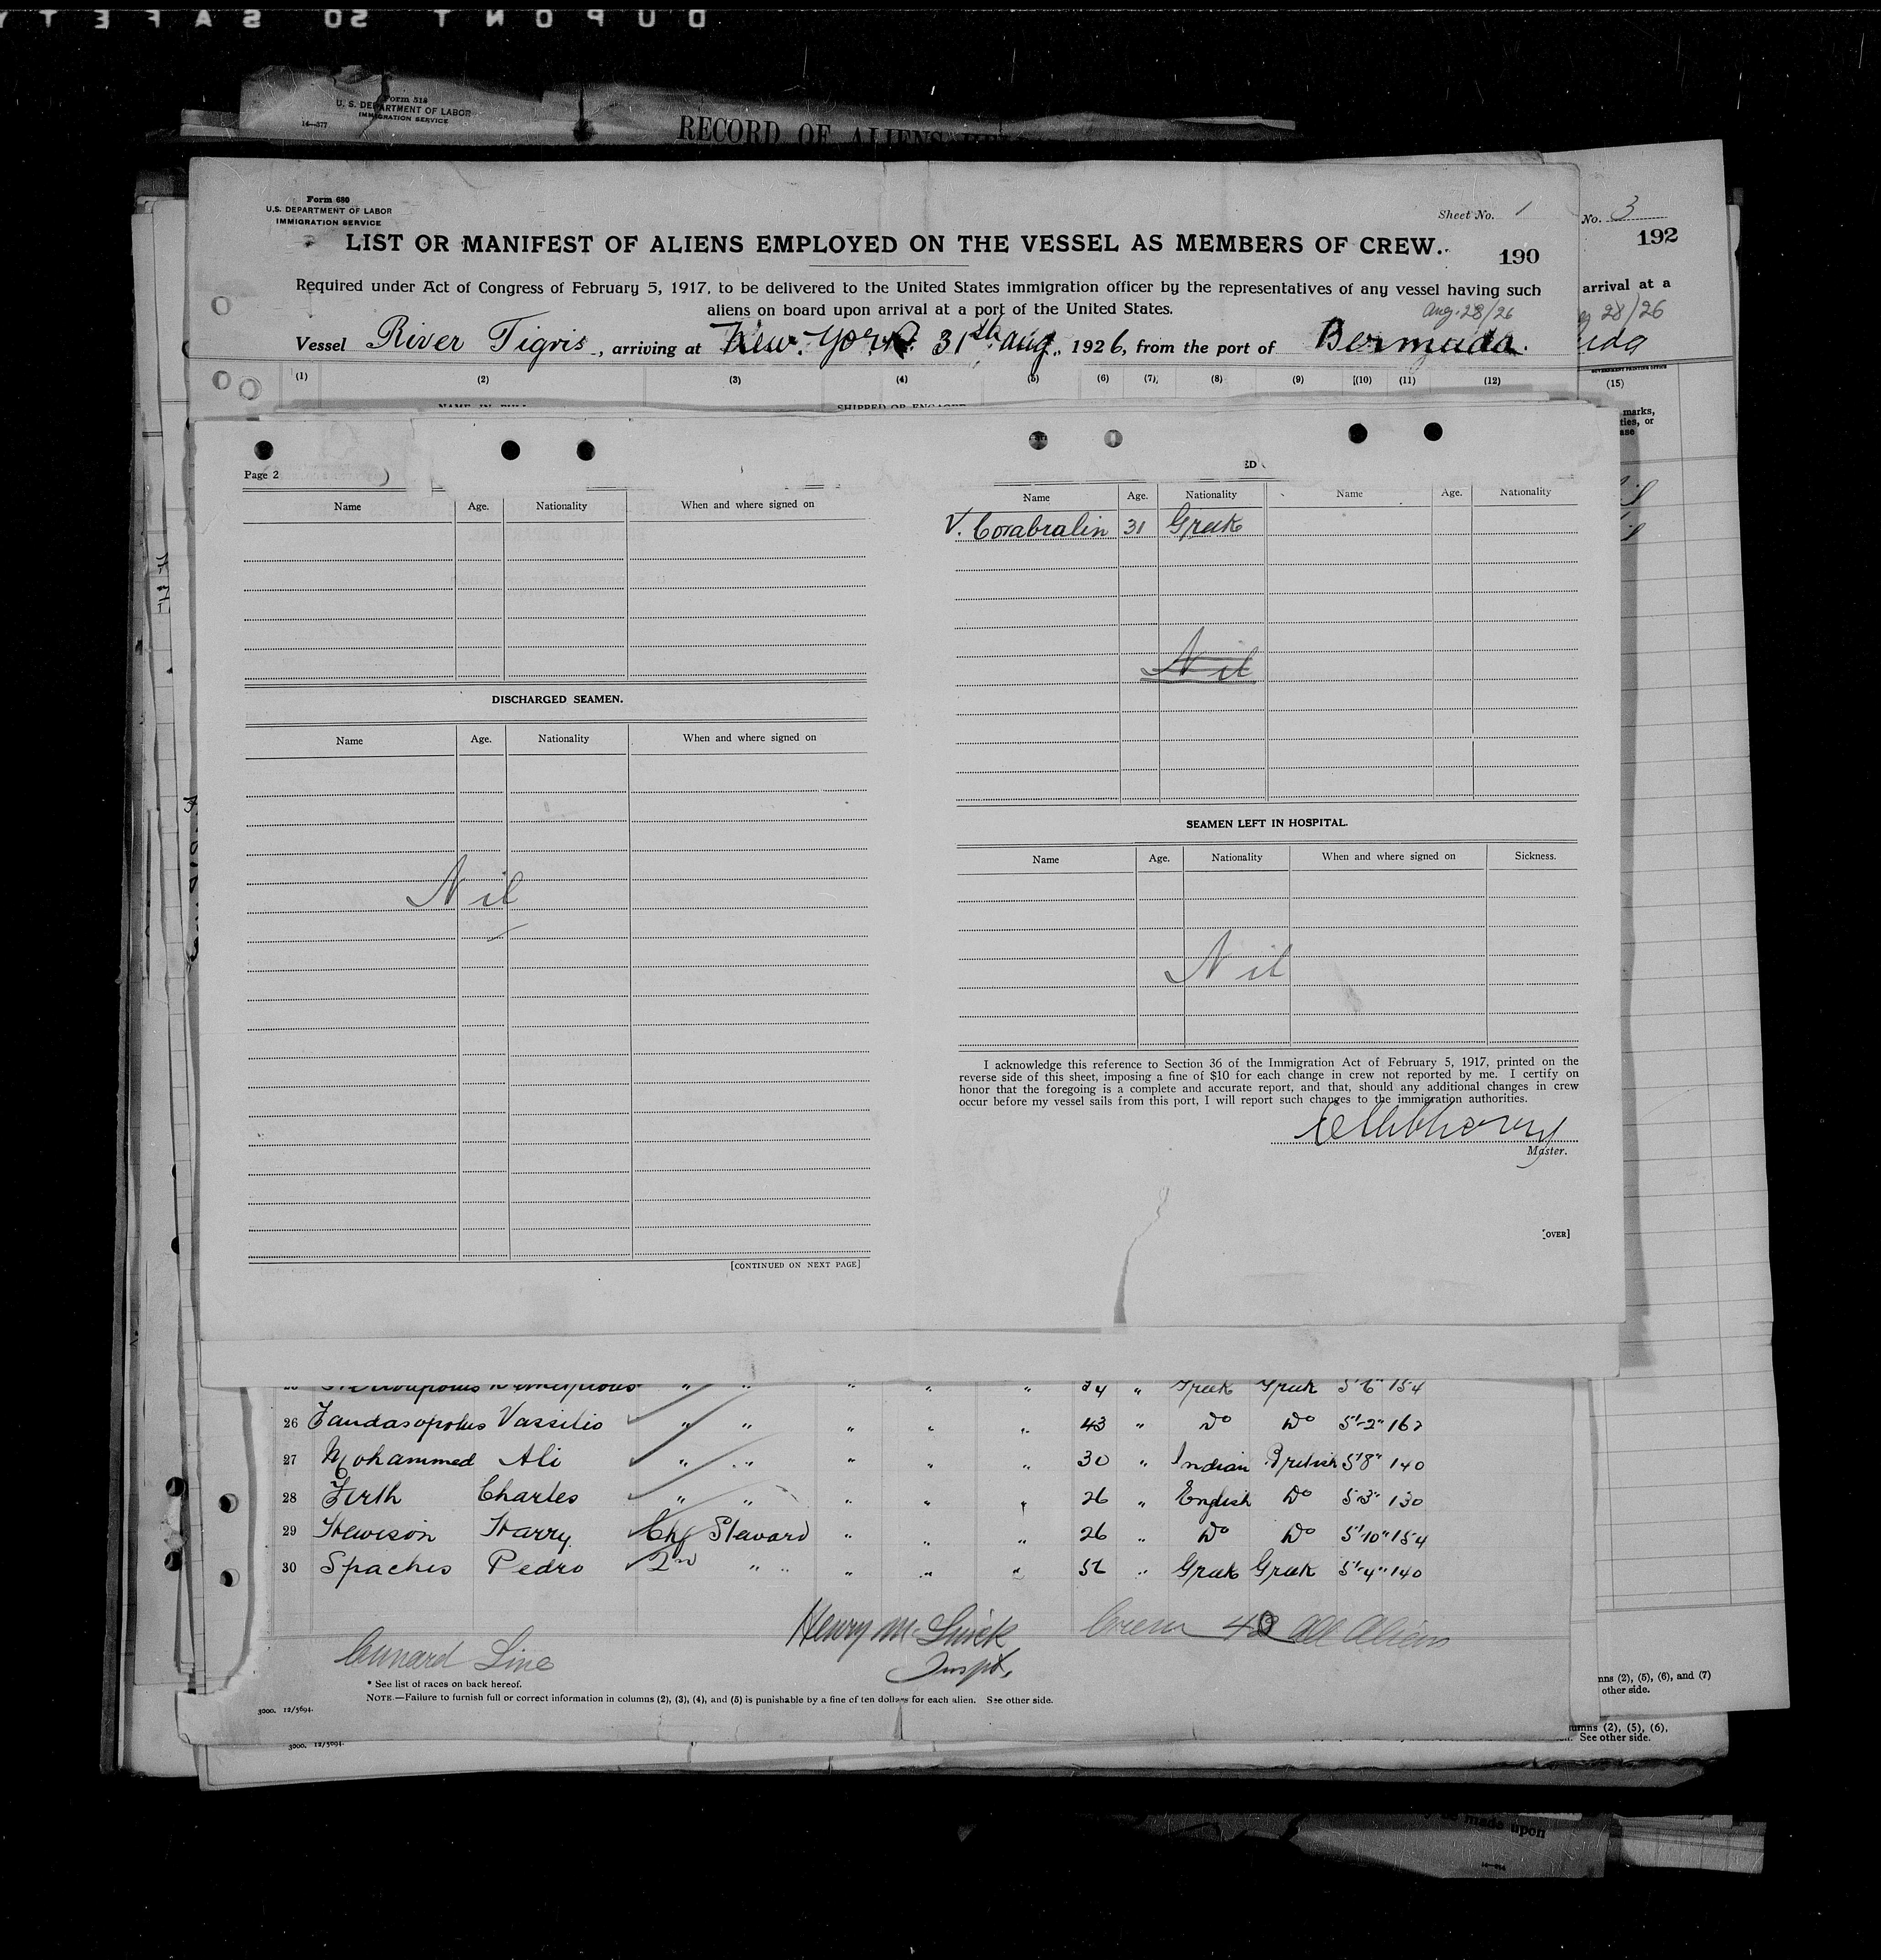 DUPONT SO SAFETY
Form 518
U. S. DEPARTMENT OF LABOR
IMMIGRATION SERVICE
14—577
RECORD OF ALIENS
Form 680
U.S. DEPARTMENT OF LABOR
IMMIGRATION SERVICE
Sheet No. 1
No. 3
192
LIST OR MANIFEST OF ALIENS EMPLOYED ON THE VESSEL AS MEMBERS OF CREW.
190
Required under Act of Congress of February 5, 1917, to be delivered to the United States immigration officer by the representatives of any vessel having such
arrival at a
aliens on board upon arrival at a port of the United States.
Aug. 28/26
28/26
Vessel River Tigris, arriving at New York 31st Aug., 1926, from the port of Bermuda.
uda
(1) (2) (3) (4) (5) (6) (7) (8) (9) (10) (11) (12)
(15)
NAME IN FULL SHIPPED OR ENGAGED
marks,
ties, or
ase
Page 2
ED
Name Age. Nationality When and where signed on
Name Age. Nationality Name Age. Nationality
V. Corabralin 31 Greek
Nil
DISCHARGED SEAMEN.
Name Age. Nationality When and where signed on
Nil
SEAMEN LEFT IN HOSPITAL.
Name Age. Nationality When and where signed on Sickness.
Nil
I acknowledge this reference to Section 36 of the Immigration Act of February 5, 1917, printed on the
reverse side of this sheet, imposing a fine of $10 for each change in crew not reported by me. I certify on
honor that the foregoing is a complete and accurate report, and that, should any additional changes in crew
occur before my vessel sails from this port, I will report such changes to the immigration authorities.
Master.
[OVER]
[CONTINUED ON NEXT PAGE]
34 " Greek Greek 5'6" 154
26 Zandasopolus Vassilio " " " " " 43 " Do Do 5'-2" 162
27 Mohammed Ali " " " " " 30 " Indian British 5'8" 140
28 Firth Charles " " " " " 26 " English Do 5'3" 130
29 Hewison Harry Chf Steward " " " 26 " Do Do 5'10" 154
30 Spaches Pedro 2nd " " " " " 52 " Greek Greek 5'-4" 140
Henry M.
Crew 42 All Aliens
Cunard Line
Inspt.
* See list of races on back hereof.
NOTE.—Failure to furnish full or correct information in columns (2), (3), (4), and (5) is punishable by a fine of ten dollars for each alien. See other side.
3000. 12/5694.
mns (2), (5), (6), and (7)
other side.
3000. 12/5694.
umns (2), (5), (6),
See other side.
made upon